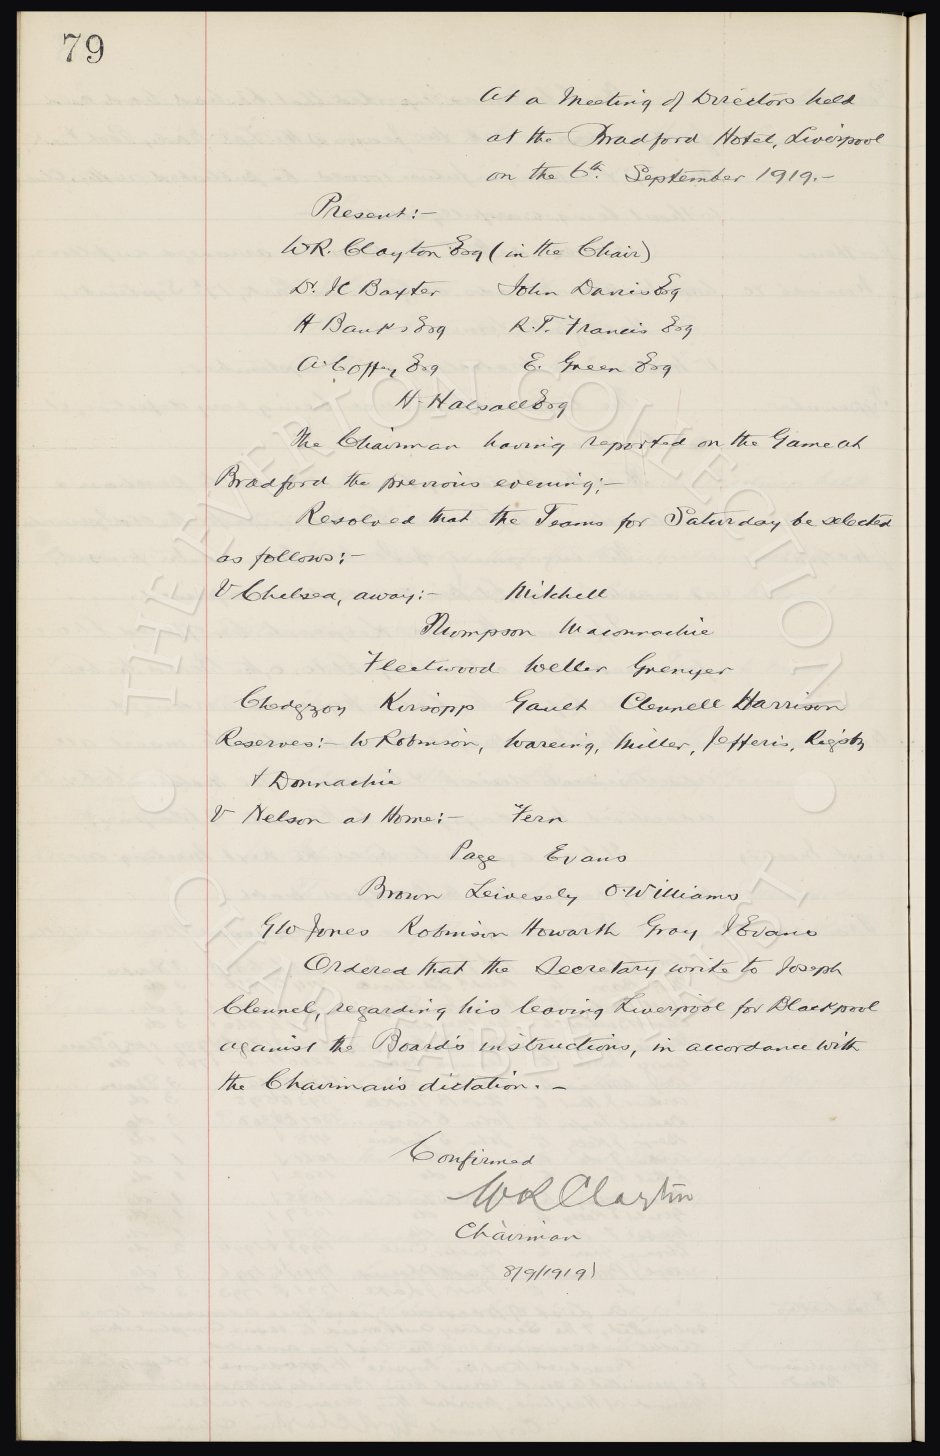 79
At a Meeting of Directors held
at the Bradford Hotel, Liverpool
on the 6th. September 1919.-
Present:-
WR. Clayton Esq (in the Chair)
Dr. JC Baxter John Davis Esq
H Banks Esq R.T. Francis Esq
A. Coffey Esq E. Green Esq
H. Halsall Esq
The Chairman having reported on the Game at
Bradford the previous evening;-
Resolved that the Teams for Saturday be selected
as follows:-
V Chelsea, away:- Mitchell
Thompson Maconnachie
Fleetwood Weller Grenyer
Chedgzoy Kirsopp Gault Clennell Harrison
Reserves:- W Robinson, Wareing, Miller, Jefferis, Rigsby
& Donnachie
V Nelson at Home:- Fern
Page Evans
Brown Leivesely O Williams
G W Jones Robinson Howarth Gray J Evans
Ordered that the Secretary write to Joseph
Clennel, regarding his leaving Liverpool for Blackpool
against the Board's instructions, in accordance with
the Chairman's dictation. -
Confirmed
WR Clayton
Chairman
8/9/1919
THE EVERTON COLLECTION
CHARITABLE TRUST